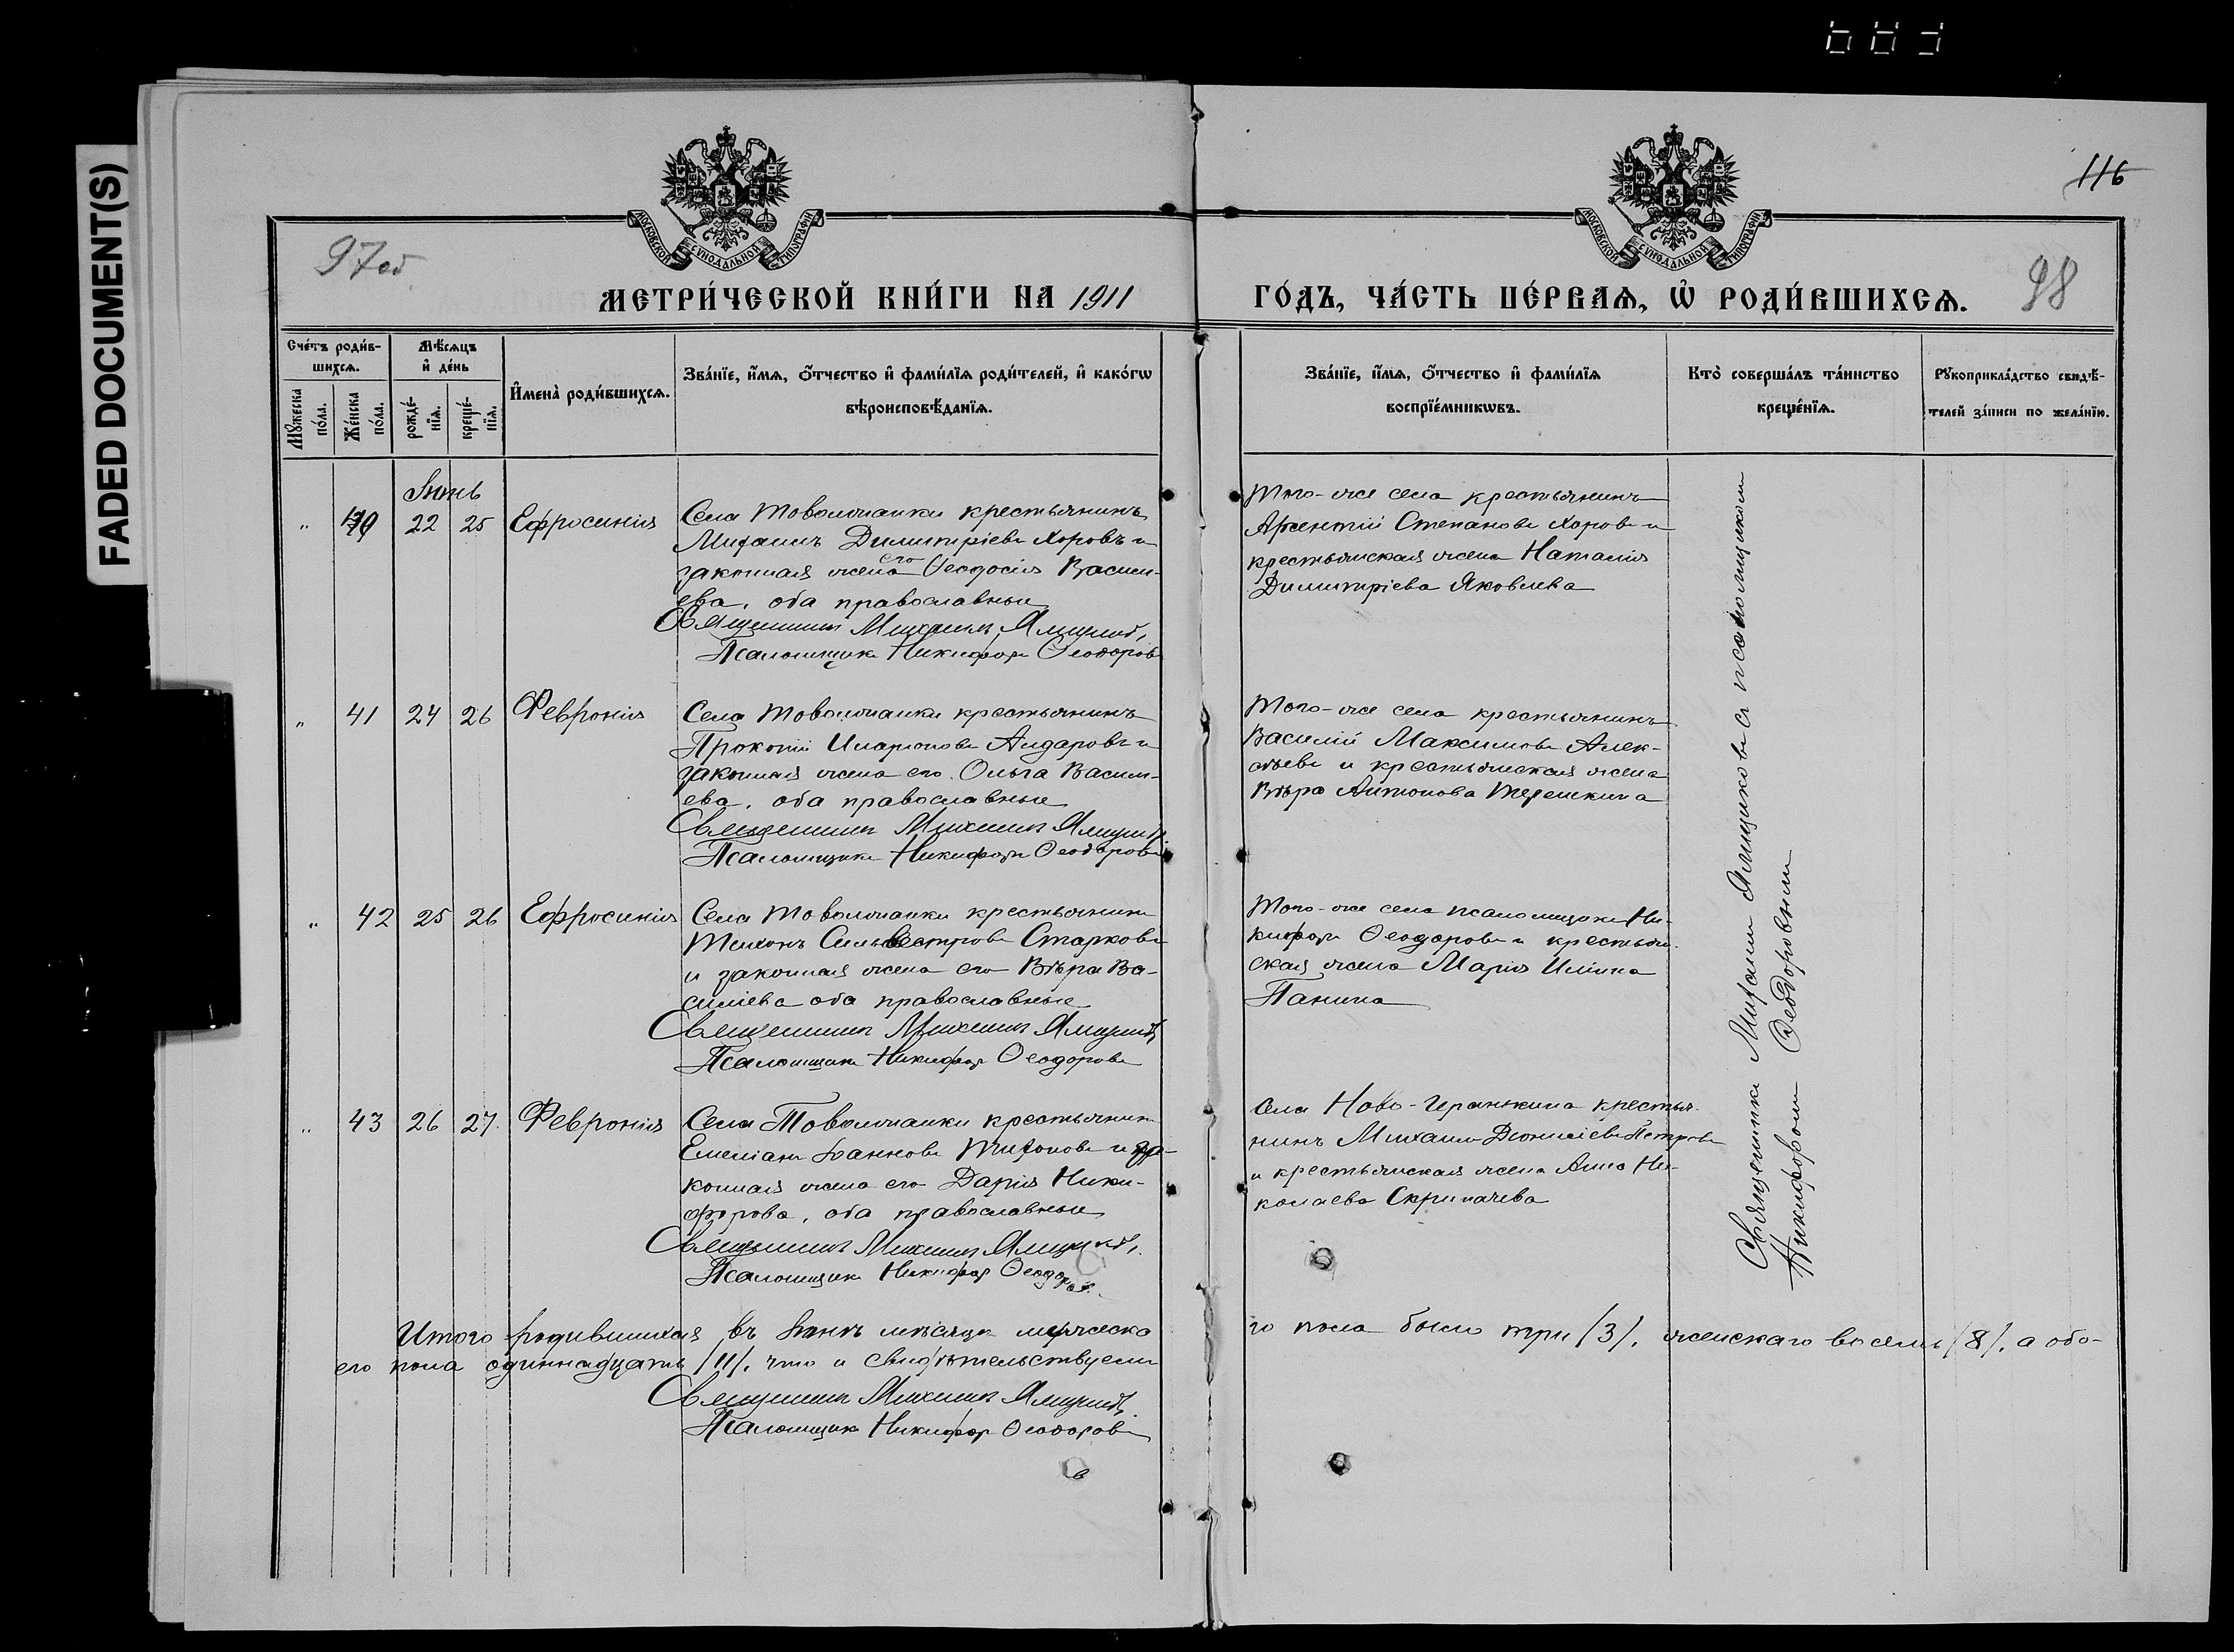 FADED DOCUMENT(S)
116
97 об
98
МОСКОВСКОЙ СѴНОДАЛЬНОЙ ТИПОГРАФІИ
МОСКОВСКОЙ СѴНОДАЛЬНОЙ ТИПОГРАФІИ
МЕТРИ́ЧЕСКОЙ КНИ́ГИ НА 1911 ГО́ДЪ, ЧА́СТЬ ПЕ́РВАѦ, Ѽ РОДИ́ВШИХСѦ.
Сче́тъ роди́в-
шихсѧ.
Мꙋ́жеска
по́ла.
Же́нска
по́ла.
Мѣ́сѧцъ
и҆ де́нь
рожде́-
нїѧ.
креще́-
нїѧ.
И҆мена̀ роди́вшихсѧ.
Зва́нїе, и҆́мѧ, ѻ҆́тчество и҆ фами́лїѧ роди́телей, и҆ како́гѡ
вѣроисповѣ́данїѧ.
Зва́нїе, и҆́мѧ, ѻ҆́тчество и҆ фами́лїѧ
воспрїе́мникѡвъ.
Кто̀ соверша́лъ та́инство
креще́нїѧ.
Рꙋкоприкла́дство свидѣ́-
телей за́писи по жела́нїю.
Іюнь
" 22 25 Ефросинія
Села Товолжанки крестьянинъ
Михаилъ Димитріевъ Хоровъ и
законная жена его Ѳеодосія Васил-
ева, оба православные
Священникъ Михаилъ Ямщиковъ
Псаломщикъ Никифоръ Ѳеодоровъ
Того-же села крестьянинъ
Арсентій Степановъ Хоровъ и
крестьянская жена Наталія
Димитріева Яковлева
" 41 24 26 Февронія
Села Товолжанки крестьянинъ
Прокопій Иларіоновъ Айдаровъ и
законная жена его Ольга Васил-
ева, оба православные
Священникъ Михаилъ Ямщиковъ
Псаломщикъ Никифоръ Ѳеодоровъ
Того-же села крестьянинъ
Василій Максимовъ Алек-
сѣевъ и крестьянская жена
Вѣра Антонова Терешкина
" 42 25 26 Ефросинія
Села Товолжанки крестьянинъ
Тихонъ Сильвестровъ Старковъ
и законная жена его Вѣра Ва-
силіева оба православные
Священникъ Михаилъ Ямщиковъ
Псаломщикъ Никифоръ Ѳеодоровъ
Того-же села псаломщикъ Ни-
кифоръ Ѳеодоровъ и крестьян-
ская жена Марія Ильина
Панина
" 43 26 27 Февронія
Села Товолжанки крестьянинъ
Емеліанъ Іоанновъ Тихоновъ и за-
конная жена его Дарія Ники-
форова, оба православные
Священникъ Михаилъ Ямщиковъ
Псаломщикъ Никифоръ Ѳеодоровъ
Села Ново-Геранькина крестья-
нинъ Михаилъ Діонисіевъ Петровъ
и крестьянская жена Анна Ни-
колаева Скрипачева
Священникъ Михаилъ Ямщиковъ съ псаломщикомъ
Никифоромъ Ѳеодоровымъ
Итого родившихся въ Іюнѣ мѣсяцѣ мужеска
го пола было три /3/, женскаго восемь /8/, а обо-
его пола одиннадцать /11/, что и свидѣтельствуемъ
Священникъ Михаилъ Ямщиковъ
Псаломщикъ Никифоръ Ѳеодоровъ